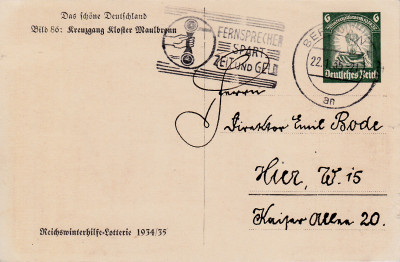 Das schöne Deutschland
Bild 86: Kreuzgang Kloster Maulbronn
FERNSPRECHEN
SPART
ZEIT UND GELD
22.1.35
an
6 6
Deutsches Reich
Herrn
Direktor Emil Bode
Hier, W. 15
Kaiser Allee 20.
Reichswinterhilfe-Lotterie 1934/35